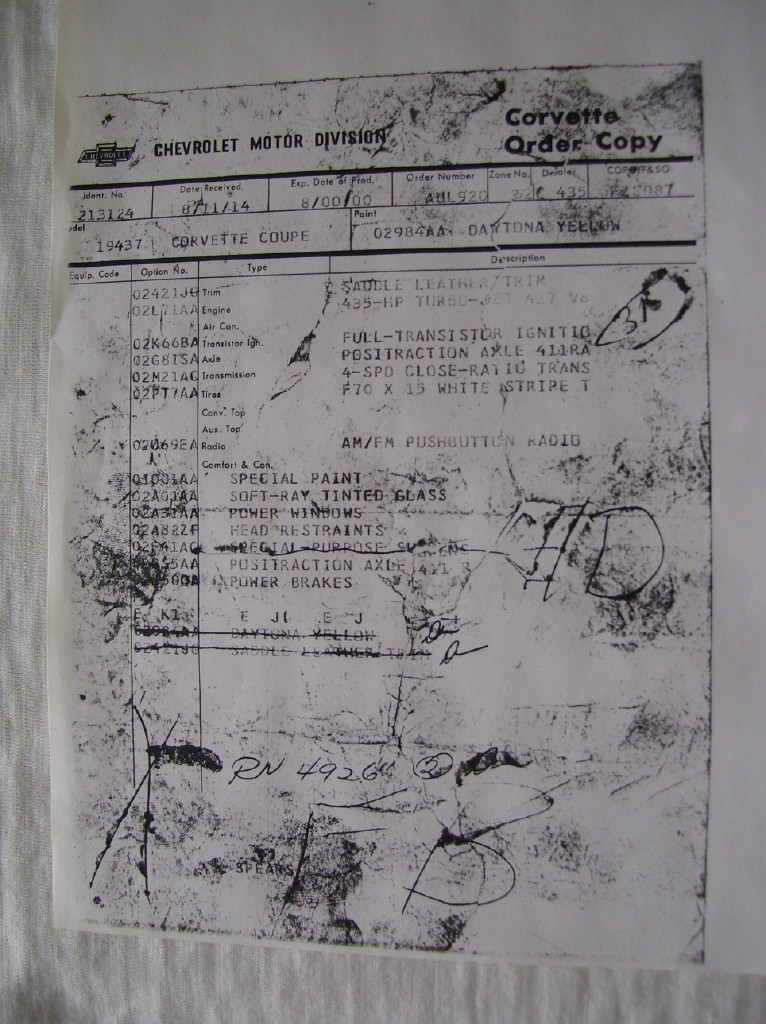 CHEVROLET
CHEVROLET MOTOR DIVISION
Corvette
Order Copy
Ident. No. Date Received Exp. Date of Prod. Order Number Zone No. Dealer
213124 8/11/14 8/00/00 AUL920 435
Paint
19437 CORVETTE COUPE 02984AA DAYTONA YELLOW
Equip. Code Option No. Type Description
02421JC Trim SADDLE LEATHER/TRIM
02L71AA Engine 435-HP TURBO-JET 427 V8
Air Con.
02K66BA Transistor Ign. FULL-TRANSISTOR IGNITIO
02G81SA Axle POSITRACTION AXLE 411RA
02M21AC Transmission 4-SPD CLOSE-RATIO TRANS
02PT7AA Tires F70 X 15 WHITE STRIPE T
Conv. Top
Aux. Top
02U69EA Radio AM/FM PUSHBUTTON RADIO
Comfort & Con.
01001AA SPECIAL PAINT
02A01AA SOFT-RAY TINTED GLASS
02A31AA POWER WINDOWS
02A82ZF HEAD RESTRAINTS
02F41AC SPECIAL PURPOSE
POSITRACTION AXLE 411 R
POWER BRAKES
02984AA DAYTONA YELLOW
02421JC SADDLE LEATHER/TRIM
RN 4926 2
SPEARS